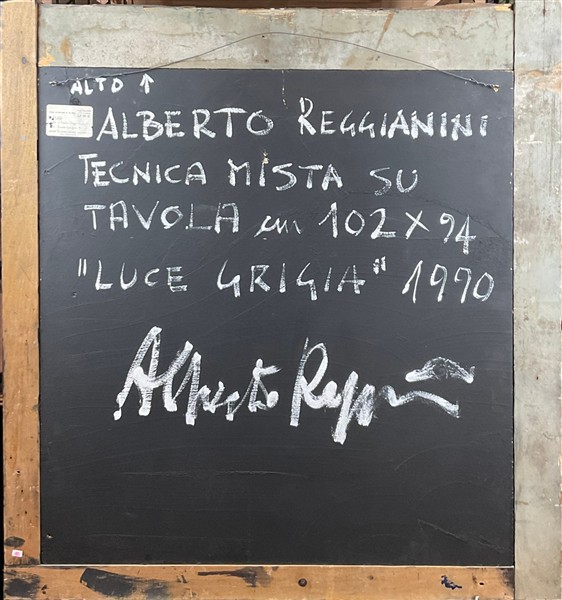 ALTO ↑
ALBERTO REGGIANINI
TECNICA MISTA SU
TAVOLA cm 102 X 94
"LUCE GRIGIA" 1990
Alberto Reggianini